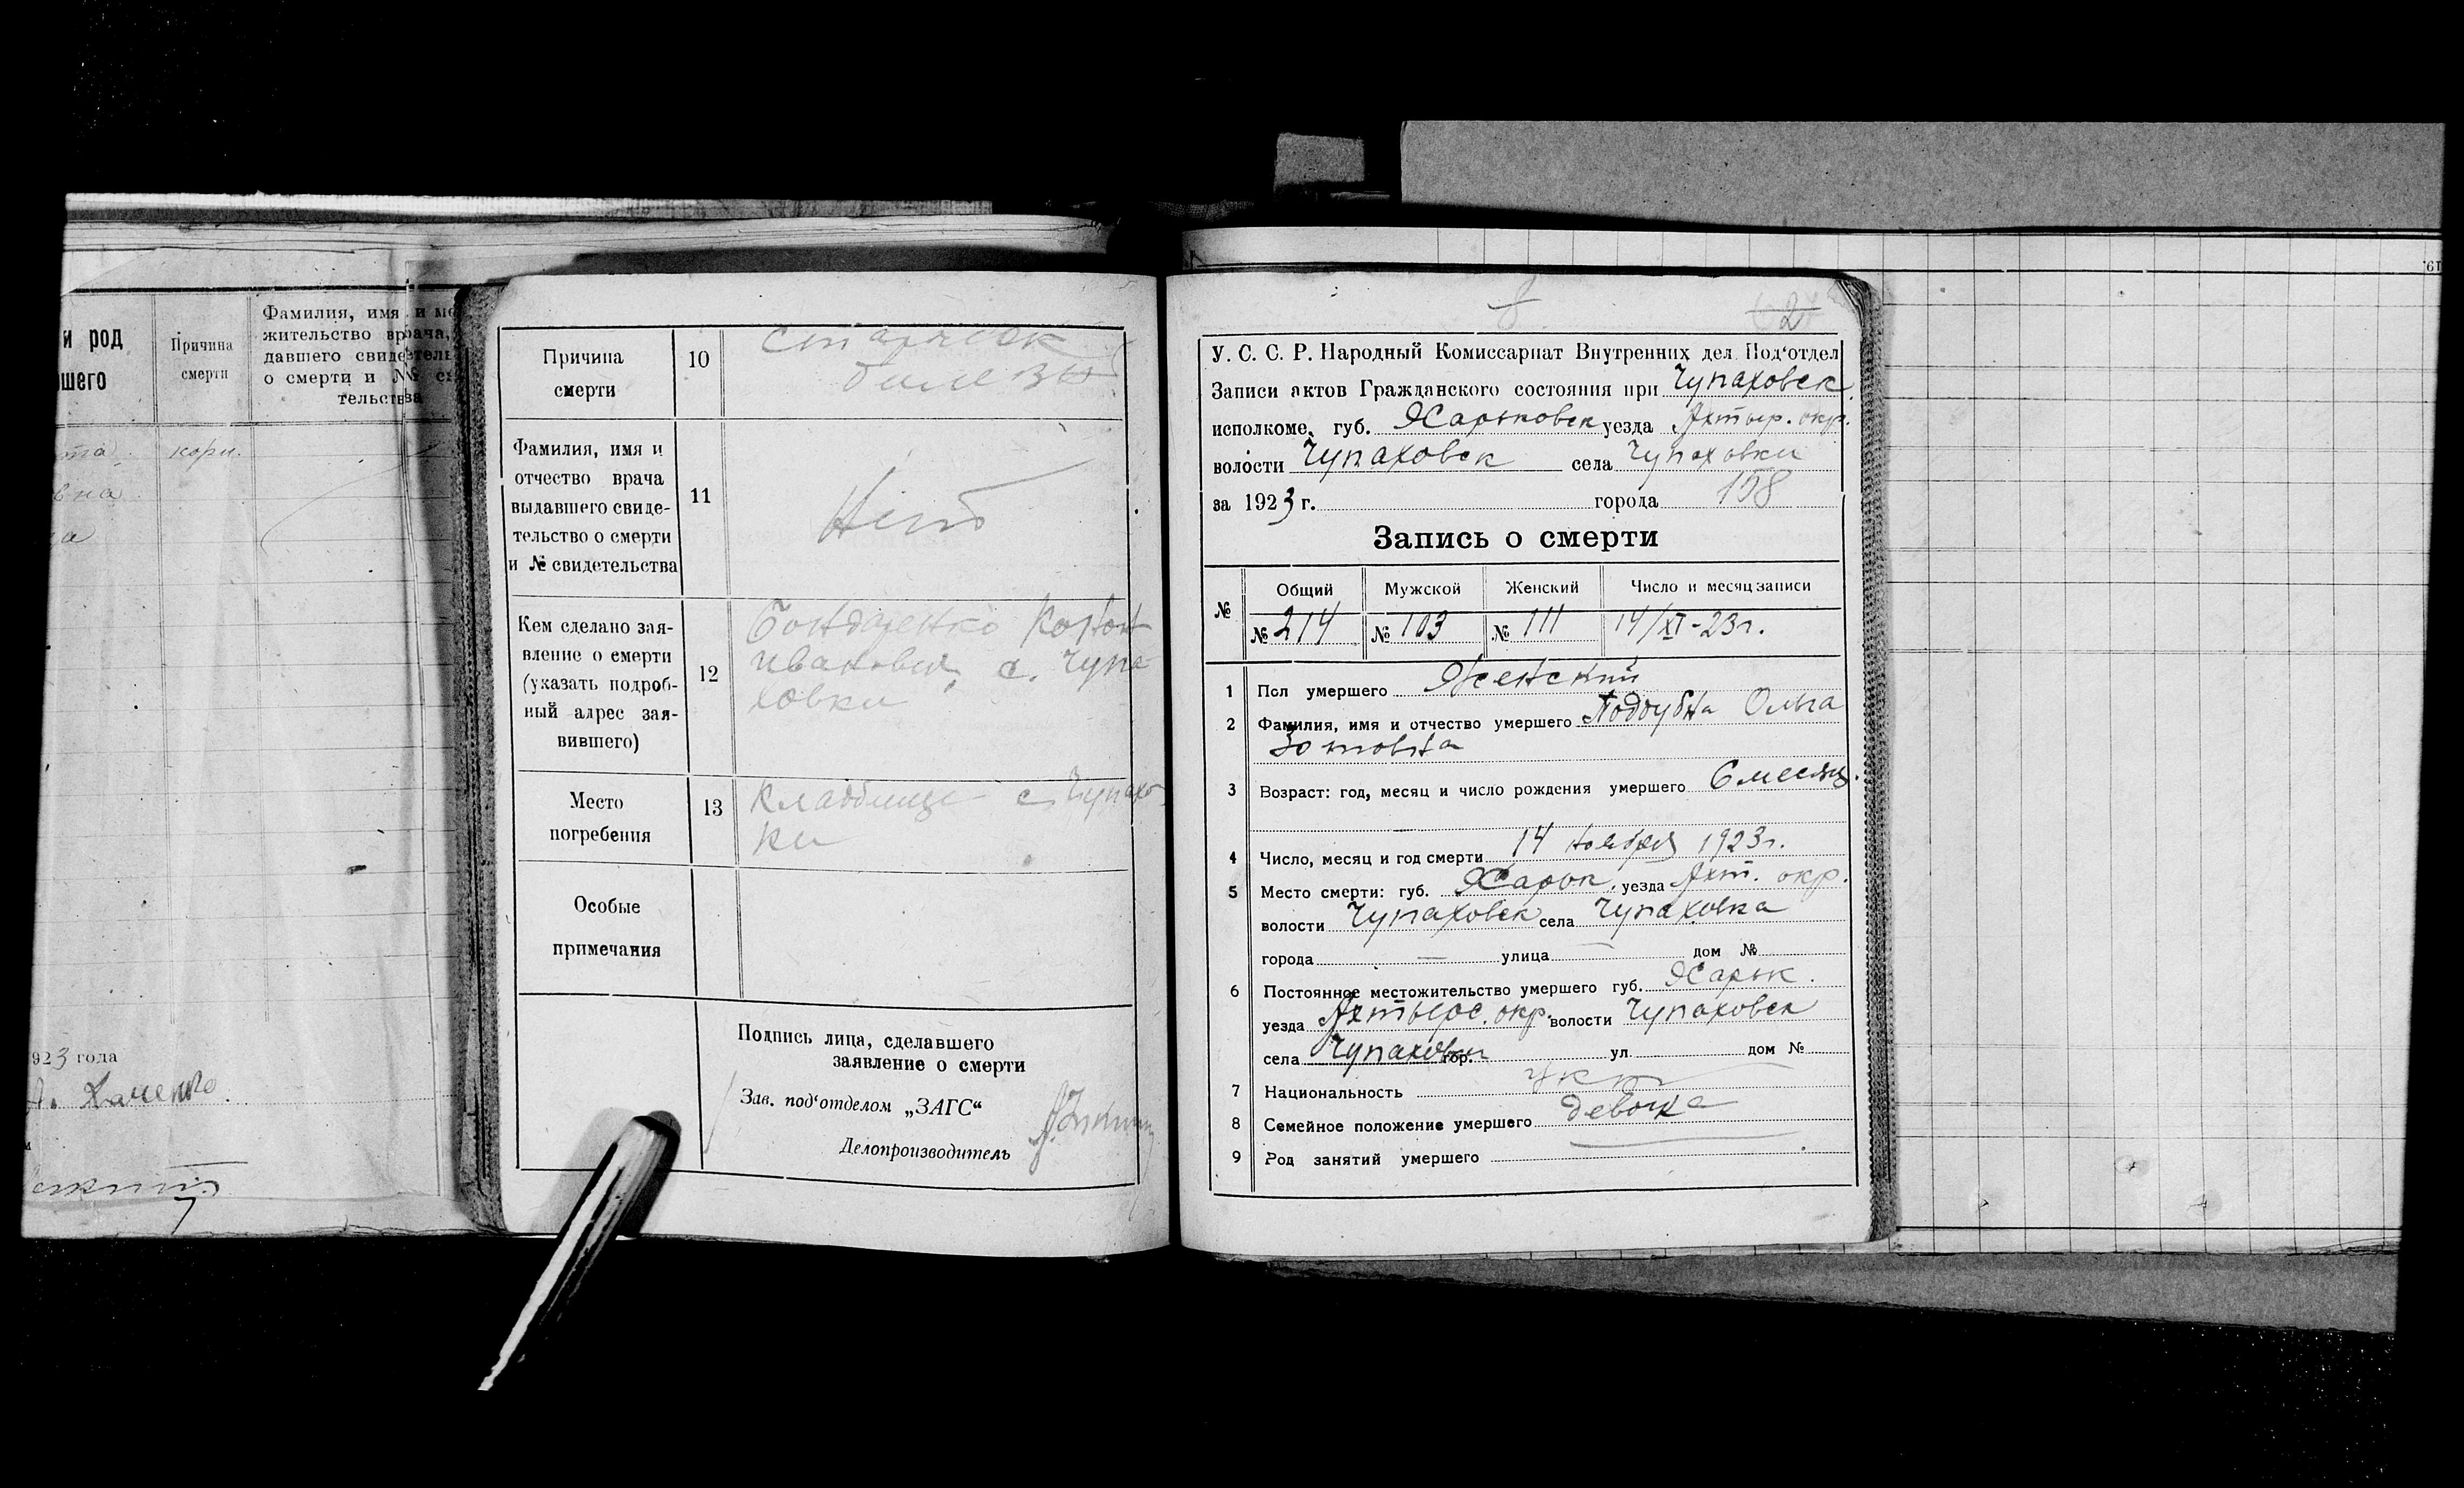 и род
ршего
Причина
смерти
Фамилия, имя и ме
жительство врача,
давшего свидетель
о смерти и № св
тельства
ота.
вна
да
корь.
923 года
Причина
смерти
10
старческ
болезнь
Фамилия, имя и
отчество врача
выдавшего свиде-
тельство о смерти
и № свидетельства
11
Нет
Кем сделано зая-
вление о смерти
(указать подроб-
ный адрес зая-
вившего)
12
Бондаренко
с. Чупа
ховки
Место
погребения
13
Кладбище с Чупахо
ки
Особые
примечания
Подпись лица, сделавшего
заявление о смерти
Зав. под‘отделом „ЗАГС“
Делопроизводитель
2
У. С. С. Р. Народный Комиссариат Внутренних дел. Под‘отдел
Записи актов Гражданского состояния при Чупаховск.
исполкоме, губ. Харьковск уезда Ахтыр. окр.
волости Чупаховск села Чупаховки
за 1923 г. города 158
Запись о смерти
№ Общий Мужской Женский Число и месяц записи
№ 214 № 103 № 111 14/XI-23г.
1 Пол умершего Женский
2 Фамилия, имя и отчество умершего Поддубна Ольга
Зотовна
3 Возраст: год, месяц и число рождения умершего 6 месяц.
4 Число, месяц и год смерти 14 ноября 1923г.
5 Место смерти: губ. Харьк. уезда Ахт. окр.
волости Чупаховск села Чупаховка
города — улица — дом №
6 Постоянное местожительство умершего губ. Харьк.
уезда Ахтырс. окр. волости Чупаховск
села Чупаховки гор. ул. дом №
7 Национальность укр
8 Семейное положение умершего девочка
9 Род занятий умершего —